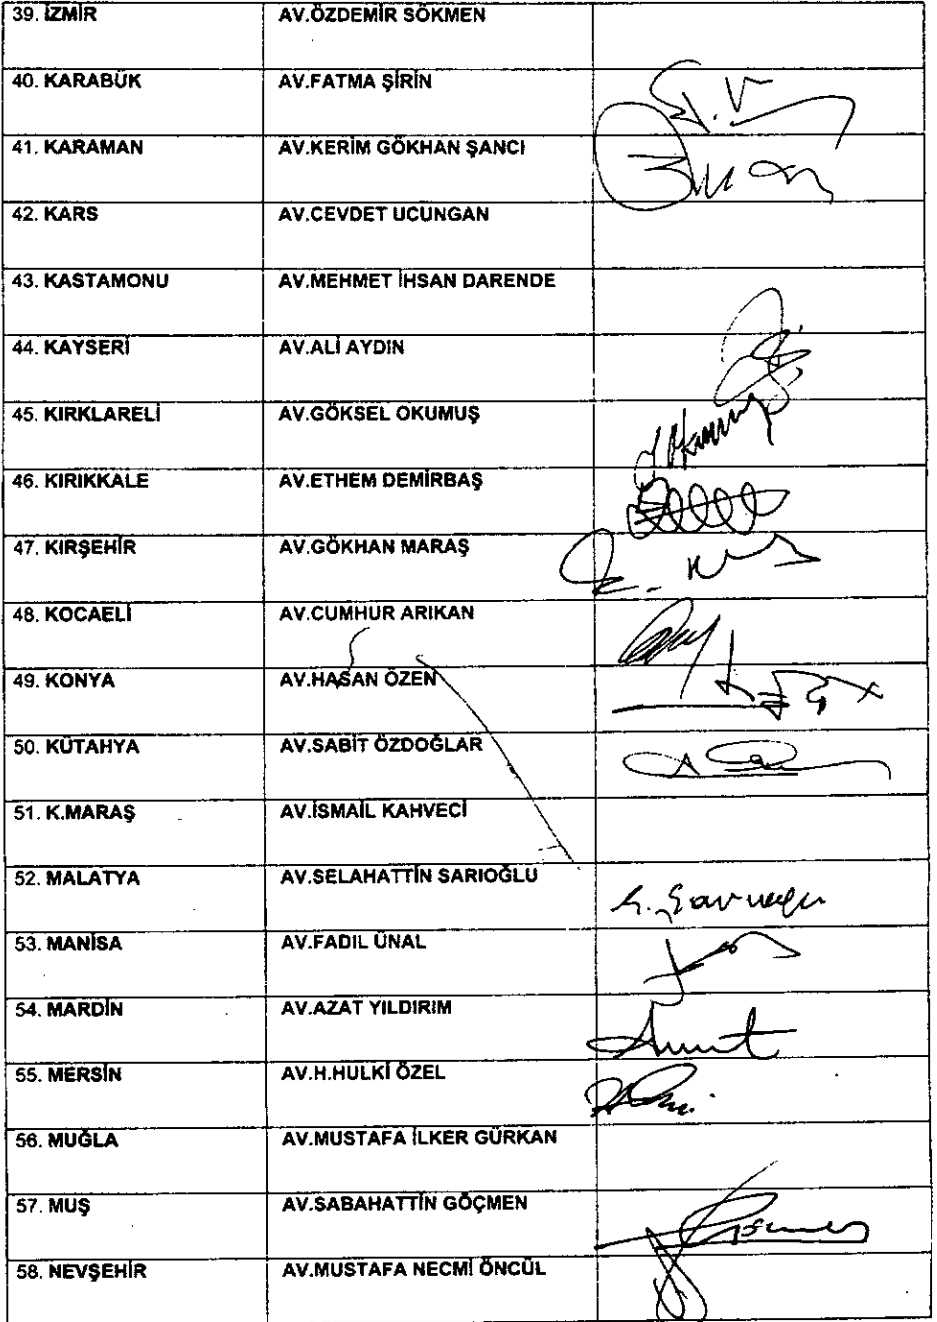 39. İZMİR AV.ÖZDEMİR SÖKMEN
40. KARABÜK AV.FATMA ŞİRİN
41. KARAMAN AV.KERİM GÖKHAN ŞANCI
42. KARS AV.CEVDET UCUNGAN
43. KASTAMONU AV.MEHMET İHSAN DARENDE
44. KAYSERİ AV.ALİ AYDIN
45. KIRKLARELİ AV.GÖKSEL OKUMUŞ
46. KIRIKKALE AV.ETHEM DEMİRBAŞ
47. KIRŞEHİR AV.GÖKHAN MARAŞ
48. KOCAELİ AV.CUMHUR ARIKAN
49. KONYA AV.HASAN ÖZEN
50. KÜTAHYA AV.SABİT ÖZDOĞLAR
51. K.MARAŞ AV.İSMAİL KAHVECİ
52. MALATYA AV.SELAHATTİN SARIOĞLU
53. MANİSA AV.FADIL ÜNAL
54. MARDİN AV.AZAT YILDIRIM
55. MERSİN AV.H.HULKİ ÖZEL
56. MUĞLA AV.MUSTAFA İLKER GÜRKAN
57. MUŞ AV.SABAHATTİN GÖÇMEN
58. NEVŞEHİR AV.MUSTAFA NECMİ ÖNCÜL